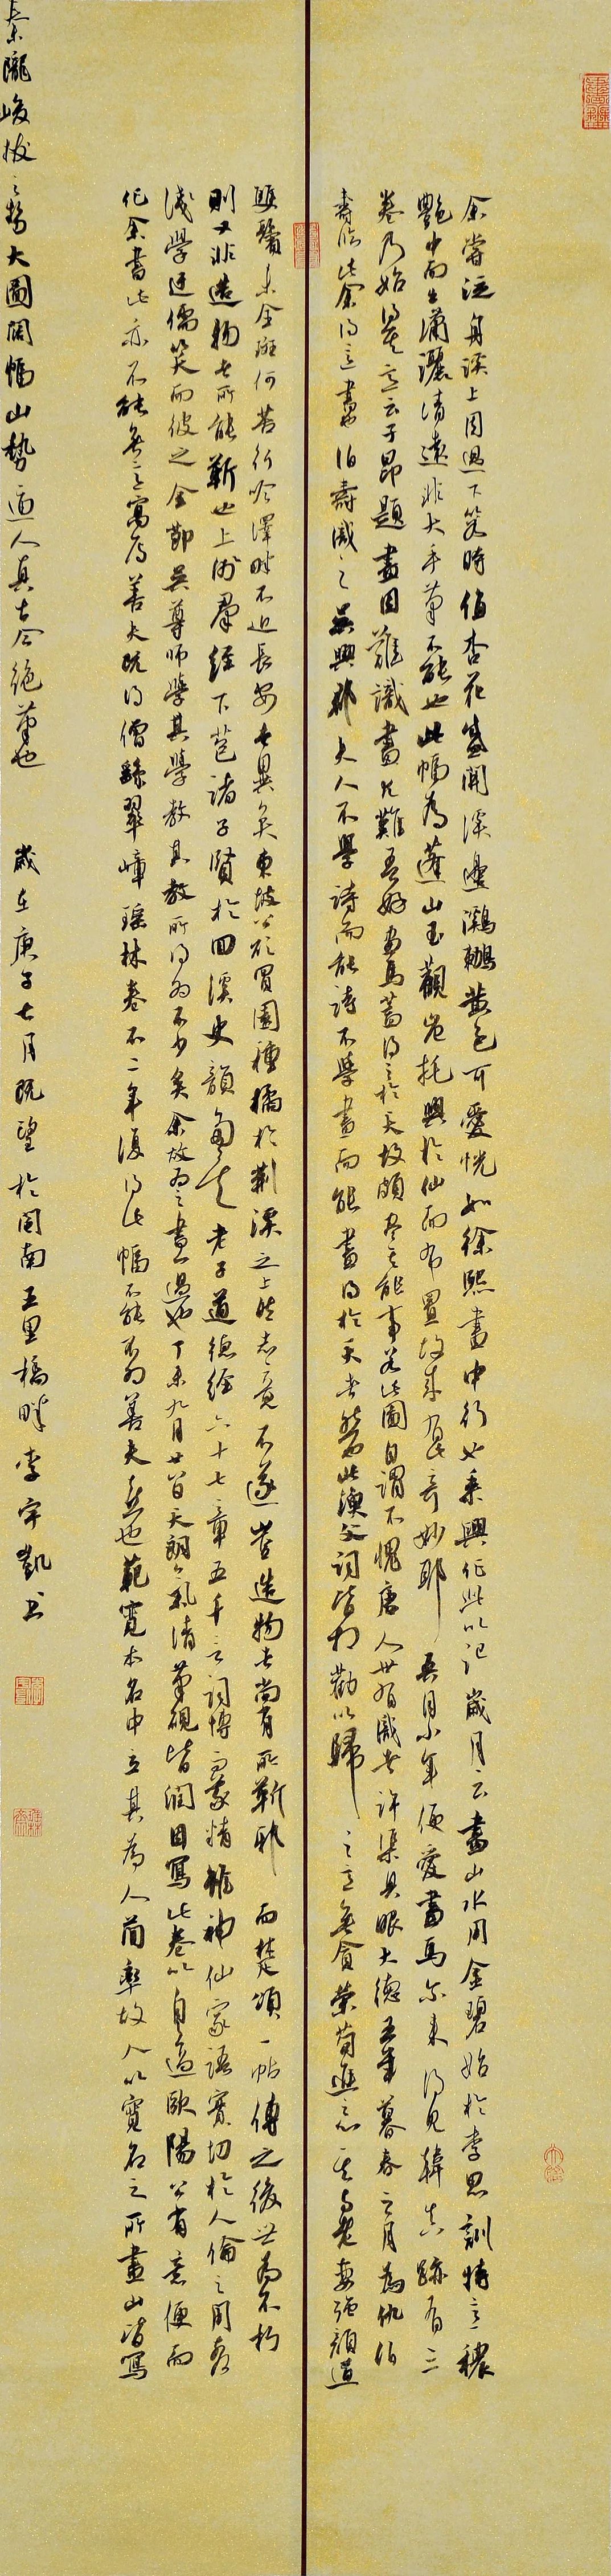 余嘗泛舟谿上周迴下箬時值杏花盛開溪邊鸂鶒黃色可愛恍如徐熙畫中行也乘興作此以記歲月云畫山水用金碧始於李思訓特立一穠
艷中而出瀟灑清遠非大手筆不能也此幅為蓬山玉觀豈托興於仙而布置故奇妙耶吾自少年便愛畫馬尔來得見韓真跡有三
卷乃始得其意云子昂題畫固難識畫尤難吾好畫馬蓋得之於天故頗盡其能事若此圖自謂不愧唐人世有識者許渠具眼大德五年暮春之月為仇伯
壽臨此余得意畫也伯壽識之吳興郡夫人不學詩而能詩不學畫而能畫得於天者然也此漁父詞皆相勸以歸之意無貪榮苟進之心其與老妻強顏道
頤鬢未全斑何苦行吟澤畔不近長安者異矣東坡公欲買園種橘於荊溪之上然志竟不遂豈造物者尚有所靳耶而楚頌一帖傳之後世為不朽
則又非造物者所能靳也上術群經下苞諸子賢於回溪史韻老子道德經六十七章五千言詞博而蒙精雅神仙家語實切於人倫之用者
淺學迂儒笑而彼之余鄞吳尊師學其學教其教所得為不少矣余故為之畫過也丁未九月廿日天朗氣清筆硯皆潤因寫此卷以自適歐陽公有意便而
作余書此亦不能無意寓焉善夫既得僧繇翠嶂瑤林卷不二年復得此幅不能不為善夫喜也範寬本名中立其為人簡率故人以寬名之所畫山皆寫
秦隴峻拔之勢大圖闊幅山勢逼人真古今絕筆也 歲在庚子七月既望於閩南五里橋畔李宇凱書